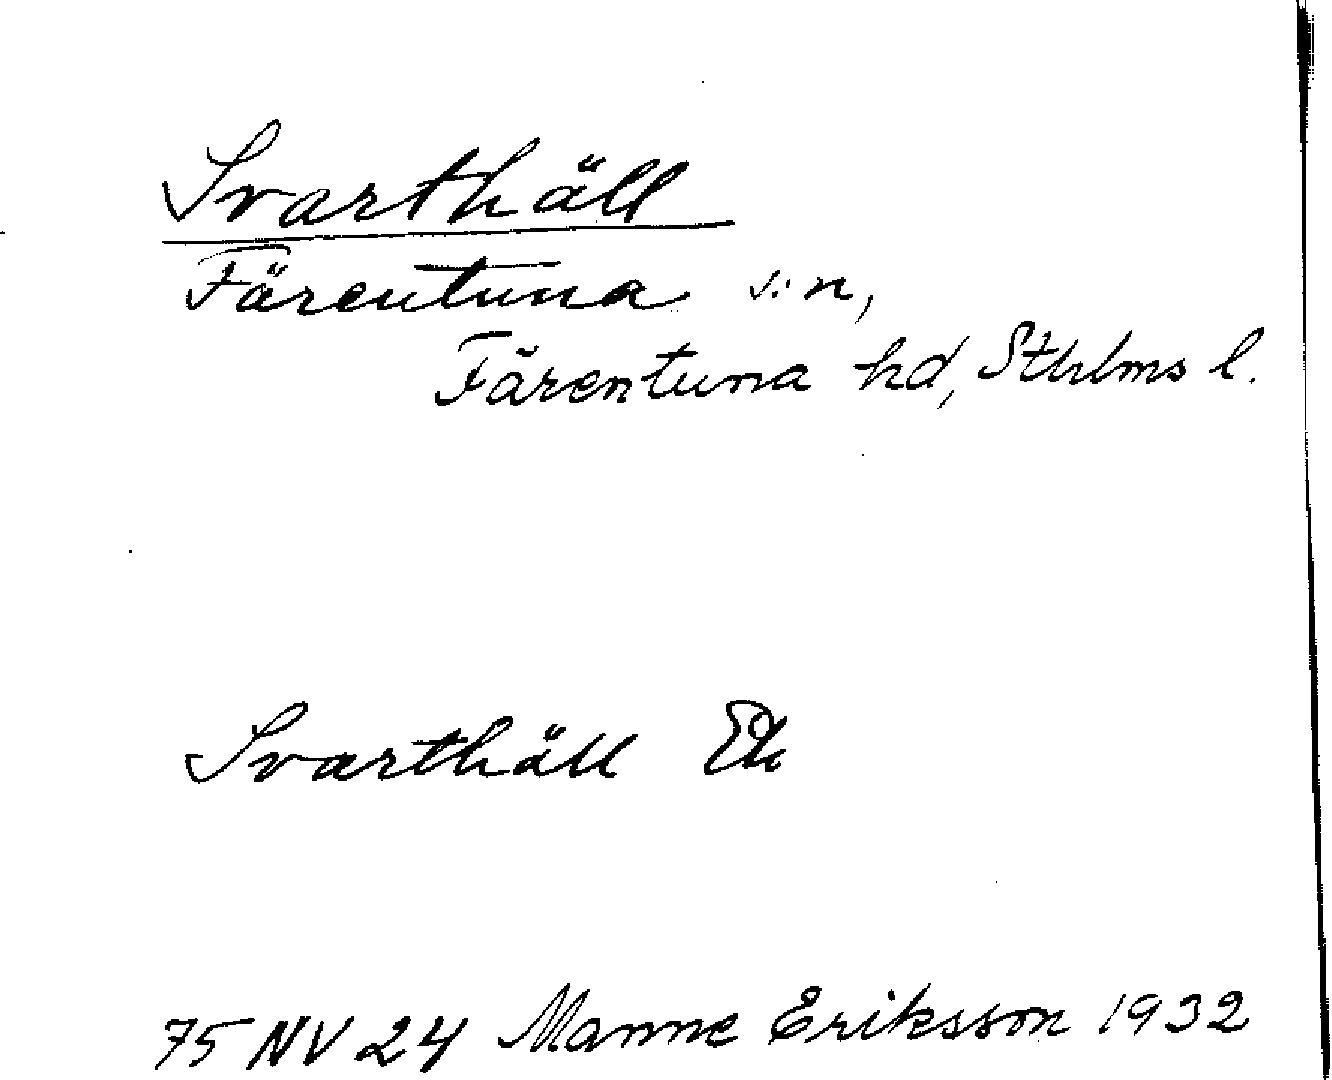 Svarthäll
Färentuna s:n,
Färentuna hd, Sthlms l.
Svarthäll Ek
75 NV 24 Manne Eriksson 1932